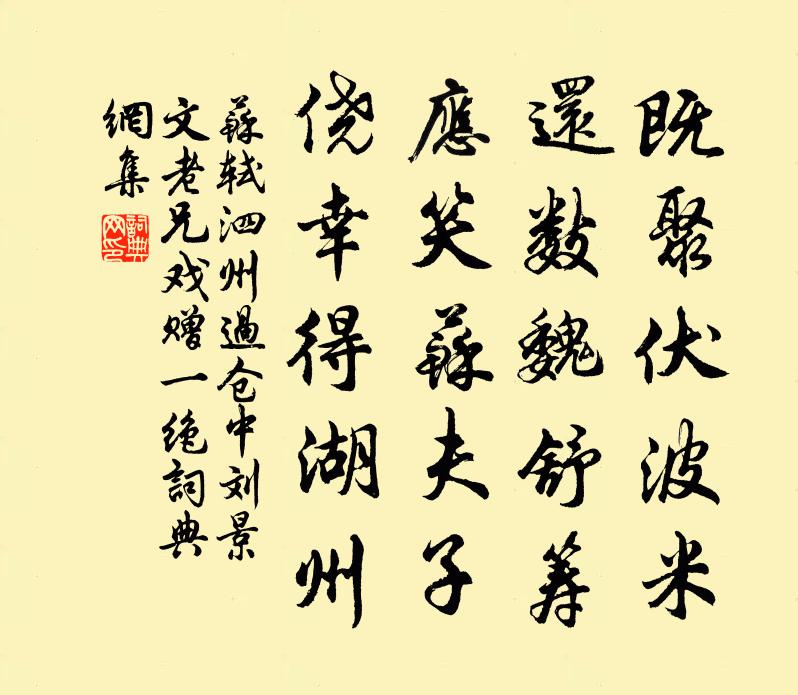 既聚伏波米
還數魏舒筭
應笑蘇夫子
侥幸得湖州
蘇轼泗州過仓中刘景
文老兄戏赠一绝詞典
網集
詞典
网印